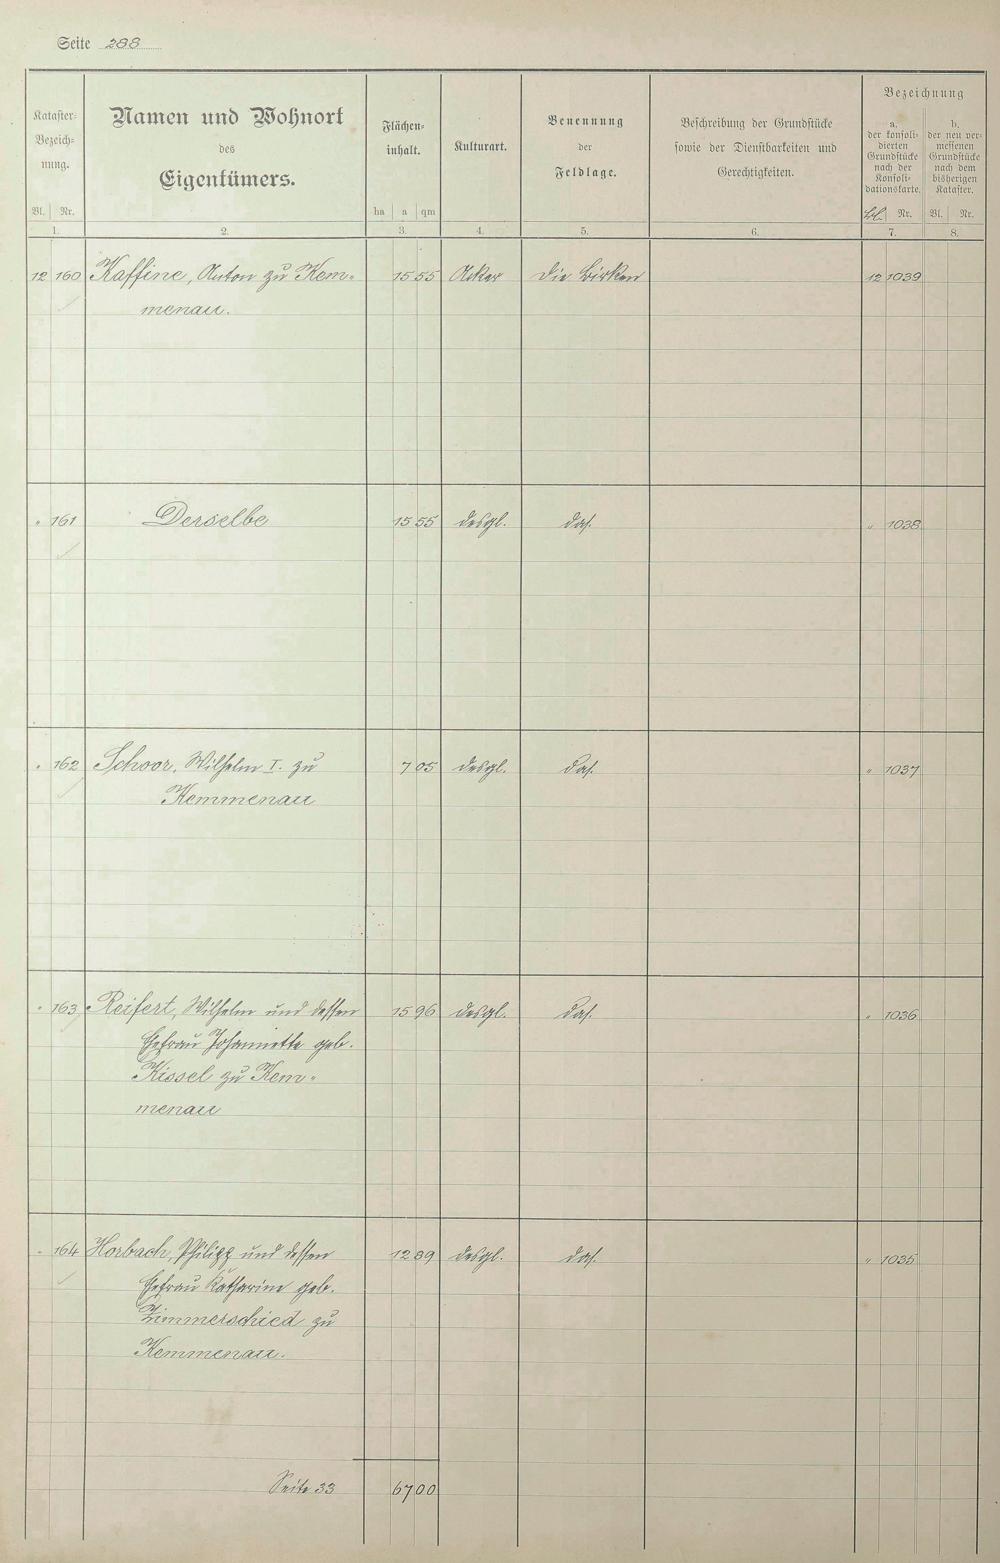 Seite 288
Kataster-Bezeich-nung.
Namen und Wohnort
des
Eigentümers.
Flächen-inhalt.
Kulturart.
Benennung
der
Feldlage.
Beschreibung der Grundstücke
sowie der Dienstbarkeiten und
Gerechtigkeiten.
Bezeichnung
a.
der konsoli-
dierten
Grundstücke
nach der
Konsoli-
dationskarte.
b.
der neu ver-
messenen
Grundstücke
nach dem
bisherigen
Kataster.
Bl. Nr. ha a qm Bl. Nr. Bl. Nr.
1. 2. 3. 4. 5. 6. 7. 8.
12 160 Kaffine, Anton zu Kem- 15 55 Acker Die Birken 12 1039
menau.
" 161 Derselbe 15 55 desgl. das. " 1038
" 162 Schoor, Wilhelm I. zu 7 05 desgl. das. " 1037
Kemmenau
" 163 Reifert, Wilhelm und dessen 15 96 desgl. das. " 1036
Ehefrau Johannette geb.
Kissel zu Kem-
menau
" 164 Horbach, Philipp und dessen 12 89 desgl. das. " 1035
Ehefrau Katharine geb.
Zimmerschied zu
Kemmenau.
Seite 33 67 00